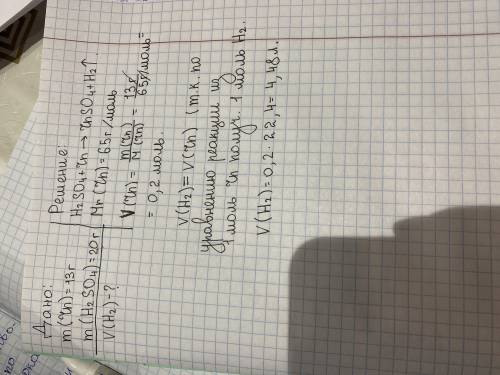 Дано:
m(Zn)=13г
m(H2SO4)=20г
V(H2)-?
Решение:
H2SO4+Zn→ZnSO4+H2↑.
Mr(Zn)=65г/моль
V(Zn)=m(Zn)/M(Zn)=13г/65г/моль=
=0,2 моль.
V(H2)=V(Zn) (т.к. по
уравнению реакции из
1 моль Zn получ. 1 моль H2.
V(H2)=0,2·22,4=4,48л.